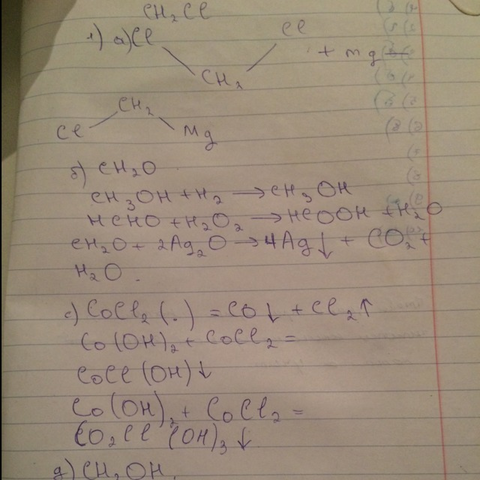 CH₂Cl
1) а) Cl Cl
CH₂ + Mg
CH₂
Cl Mg
б) CH₂O
CH₃OH + H₂ → CH₃OH
HCHO + H₂O₂ → HCOOH + H₂O
CH₂O + 2Ag₂O → 4Ag↓ + CO₂ +
H₂O.
с) CoCl₂ (.) = CO↓ + Cl₂↑
Co(OH)₂ + CoCl₂ =
CoCl(OH)↓
Co(OH)₂ + CoCl₂ =
CO₂Cl (OH)₃↓
д) CH₃OH.